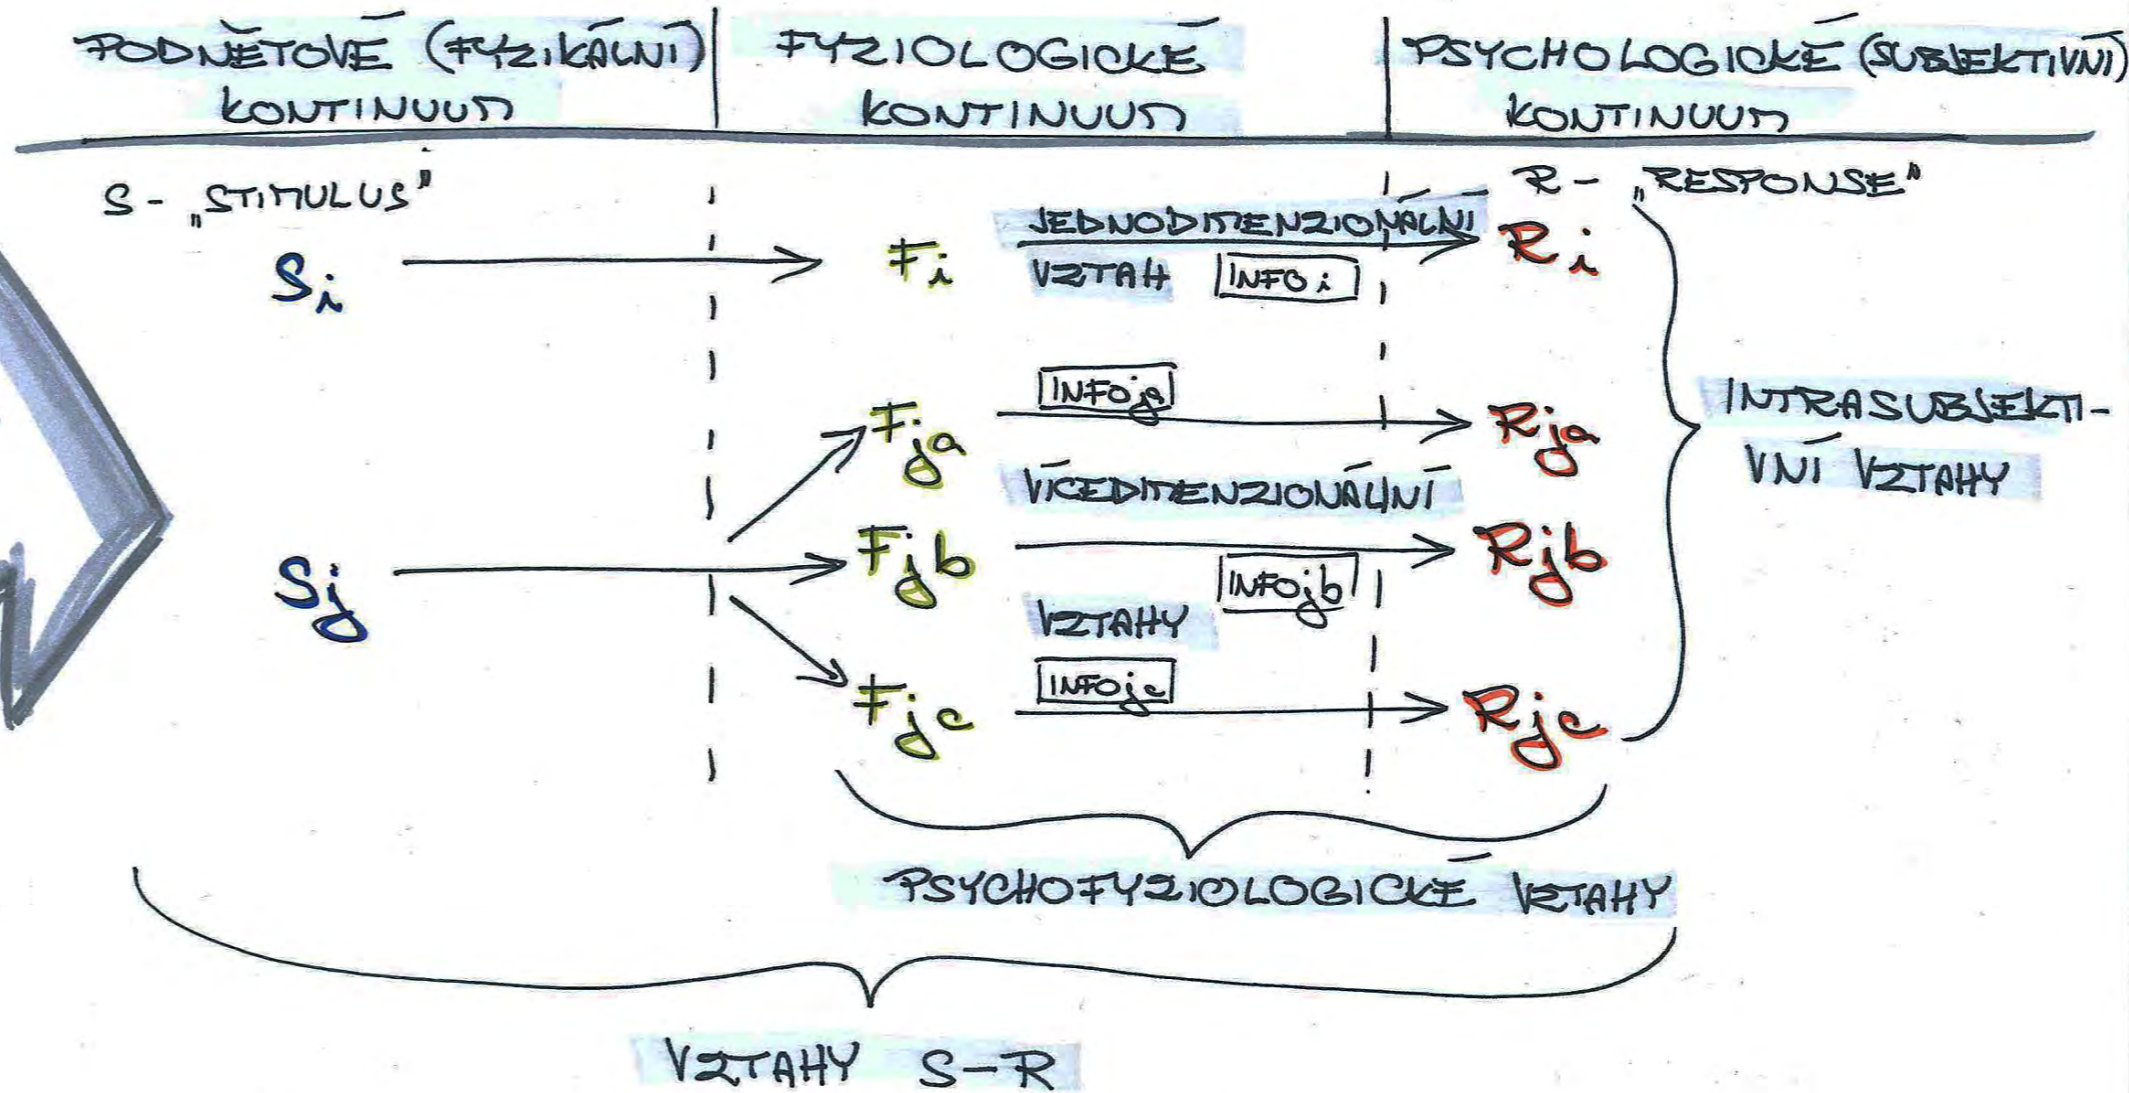 PODNĚTOVÉ (FYZIKÁLNÍ)
KONTINUUM
FYZIOLOGICKÉ
KONTINUUM
PSYCHOLOGICKÉ (SUBJEKTIVNÍ)
KONTINUUM
S - „STIMULUS"
R - „RESPONSE"
Si
Fi
JEDNODIMENZIONÁLNÍ
VZTAH
INFO i
Ri
Sj
Fja
INFOja
Rja
VÍCEDIMENZIONÁLNÍ
Fjb
INFOjb
Rjb
VZTAHY
Fjc
INFOjc
Rjc
INTRASUBJEKTI-
VNÍ VZTAHY
PSYCHOFYZIOLOGICKÉ VZTAHY
VZTAHY S-R